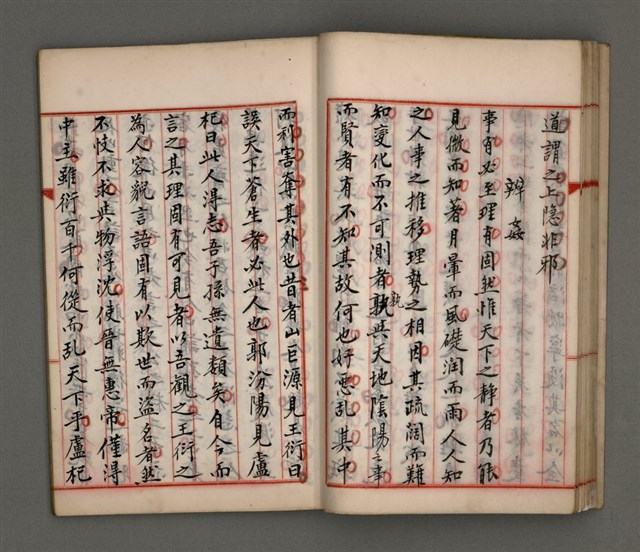 道謂之上隱非邪
辨姦
事有必至理有固然惟天下之靜者乃能
見微而知著月暈而風礎潤而雨人人知
之人事之推移理勢之相因其疏濶而難
知變化而不可測者孰與天地陰陽之事
孰
而賢者有不知其故何也好惡乱其中
而利害奪其外也昔者山巨源見王衍曰
誤天下蒼生者必此人也郭汾陽見盧
杞曰此人得志吾子孫無遺類矣自今而
言之其理固有可見者以吾觀之王衍之
為人容貌言語固有以欺世而盜名者然
不忮不求與物浮沈使晉無惠帝僅得
中主雖衍百千何從而乱天下乎盧杞